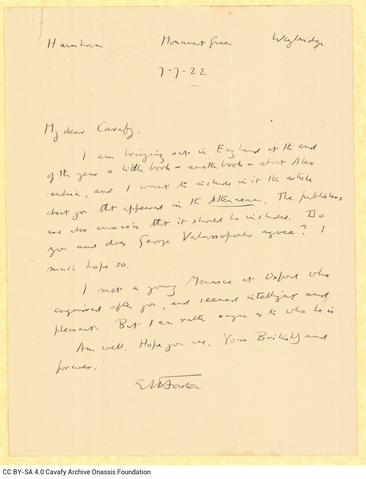 Harnham Monument Green Weybridge
7-7-22
My dear Cavafy.
I am bringing out in England at the end
of the year a little book - another book - about Alex-
andria, and I want to include in it the article
about you that appeared in the Athenaeum. The publishers
are also anxious that it should be included. Do
you and does George Valassopoulo agree? I
much hope so.
I met a young at Oxford who
enquired after you, and seemed intelligent and
pleasant. But I am rather vague as to who he is.
Am well. Hope you are. Yours and
forever.
EMForster
CC BY-SA 4.0 Cavafy Archive Onassis Foundation